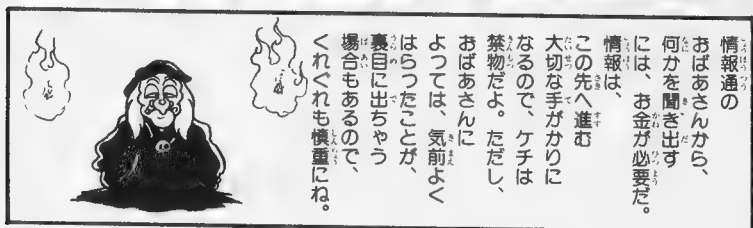 情報通の
おばあさんから、
何かを聞き出す
には、お金が必要だ。
情報は、
この先へ進む
大切な手がかりに
なるので、ケチは
禁物だよ。ただし、
おばあさんに
よっては、気前よく
はらったことが、
裏目に出ちゃう
場合もあるので、
くれぐれも慎重にね。